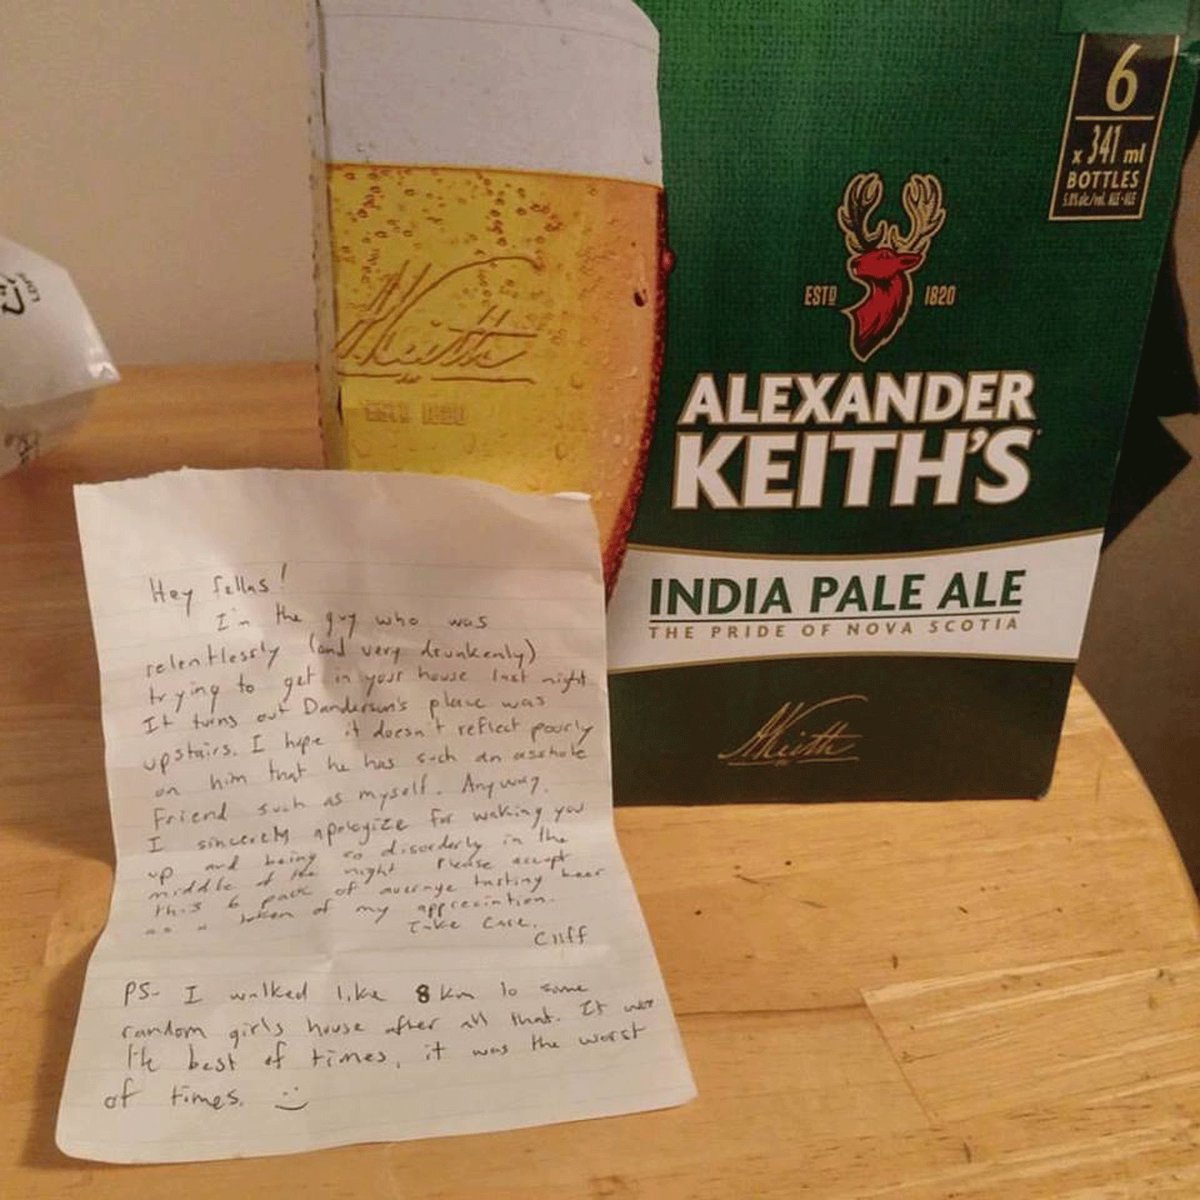 6
x 341 ml
BOTTLES
5.0% alc./vol. ALE • ALE
ESTD 1820
ALEXANDER
KEITH'S
INDIA PALE ALE
THE PRIDE OF NOVA SCOTIA
AKeith
A.Keith
ESTD 1820
Hey fellas!
I'm the guy who was
relentlessly (and very drunkenly)
trying to get in your house last night
It turns out Danderson's place was
upstairs. I hope it doesn't reflect poorly
on him that he has such an asshole
Friend such as myself. Anyway.
I sincerely apologize for waking you
up and being so disorderly in the
middle of the night Please accept
this 6 pack of average tasting beer
as a token of my appreciation.
Take Care,
Cliff
PS- I walked like 8 km to some
random girls house after all that. It was
the best of times, it was the worst
of times. :)